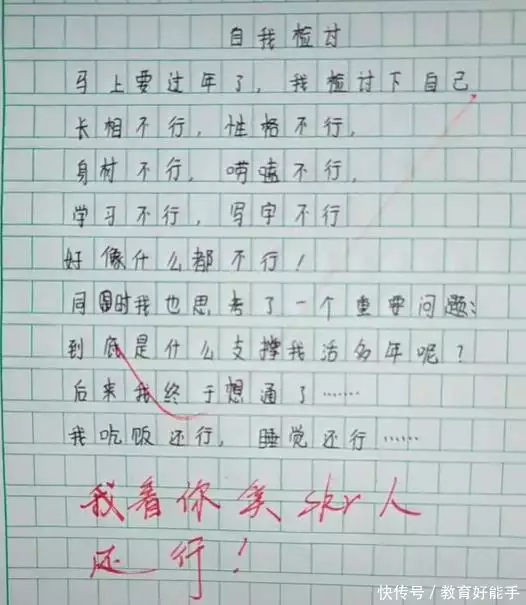 自我检讨
马上要过年了，我检讨下自己
长相不行，性格不行，
身材不行，唠嗑不行，
学习不行，写字不行
好像什么都不行！
同时我也思考了一个重要问题：
到底是什么支撑我活多年呢？
后来我终于想通了……
我吃饭还行，睡觉还行……
我看你笑skr人
还行！
快传号／教育好能手